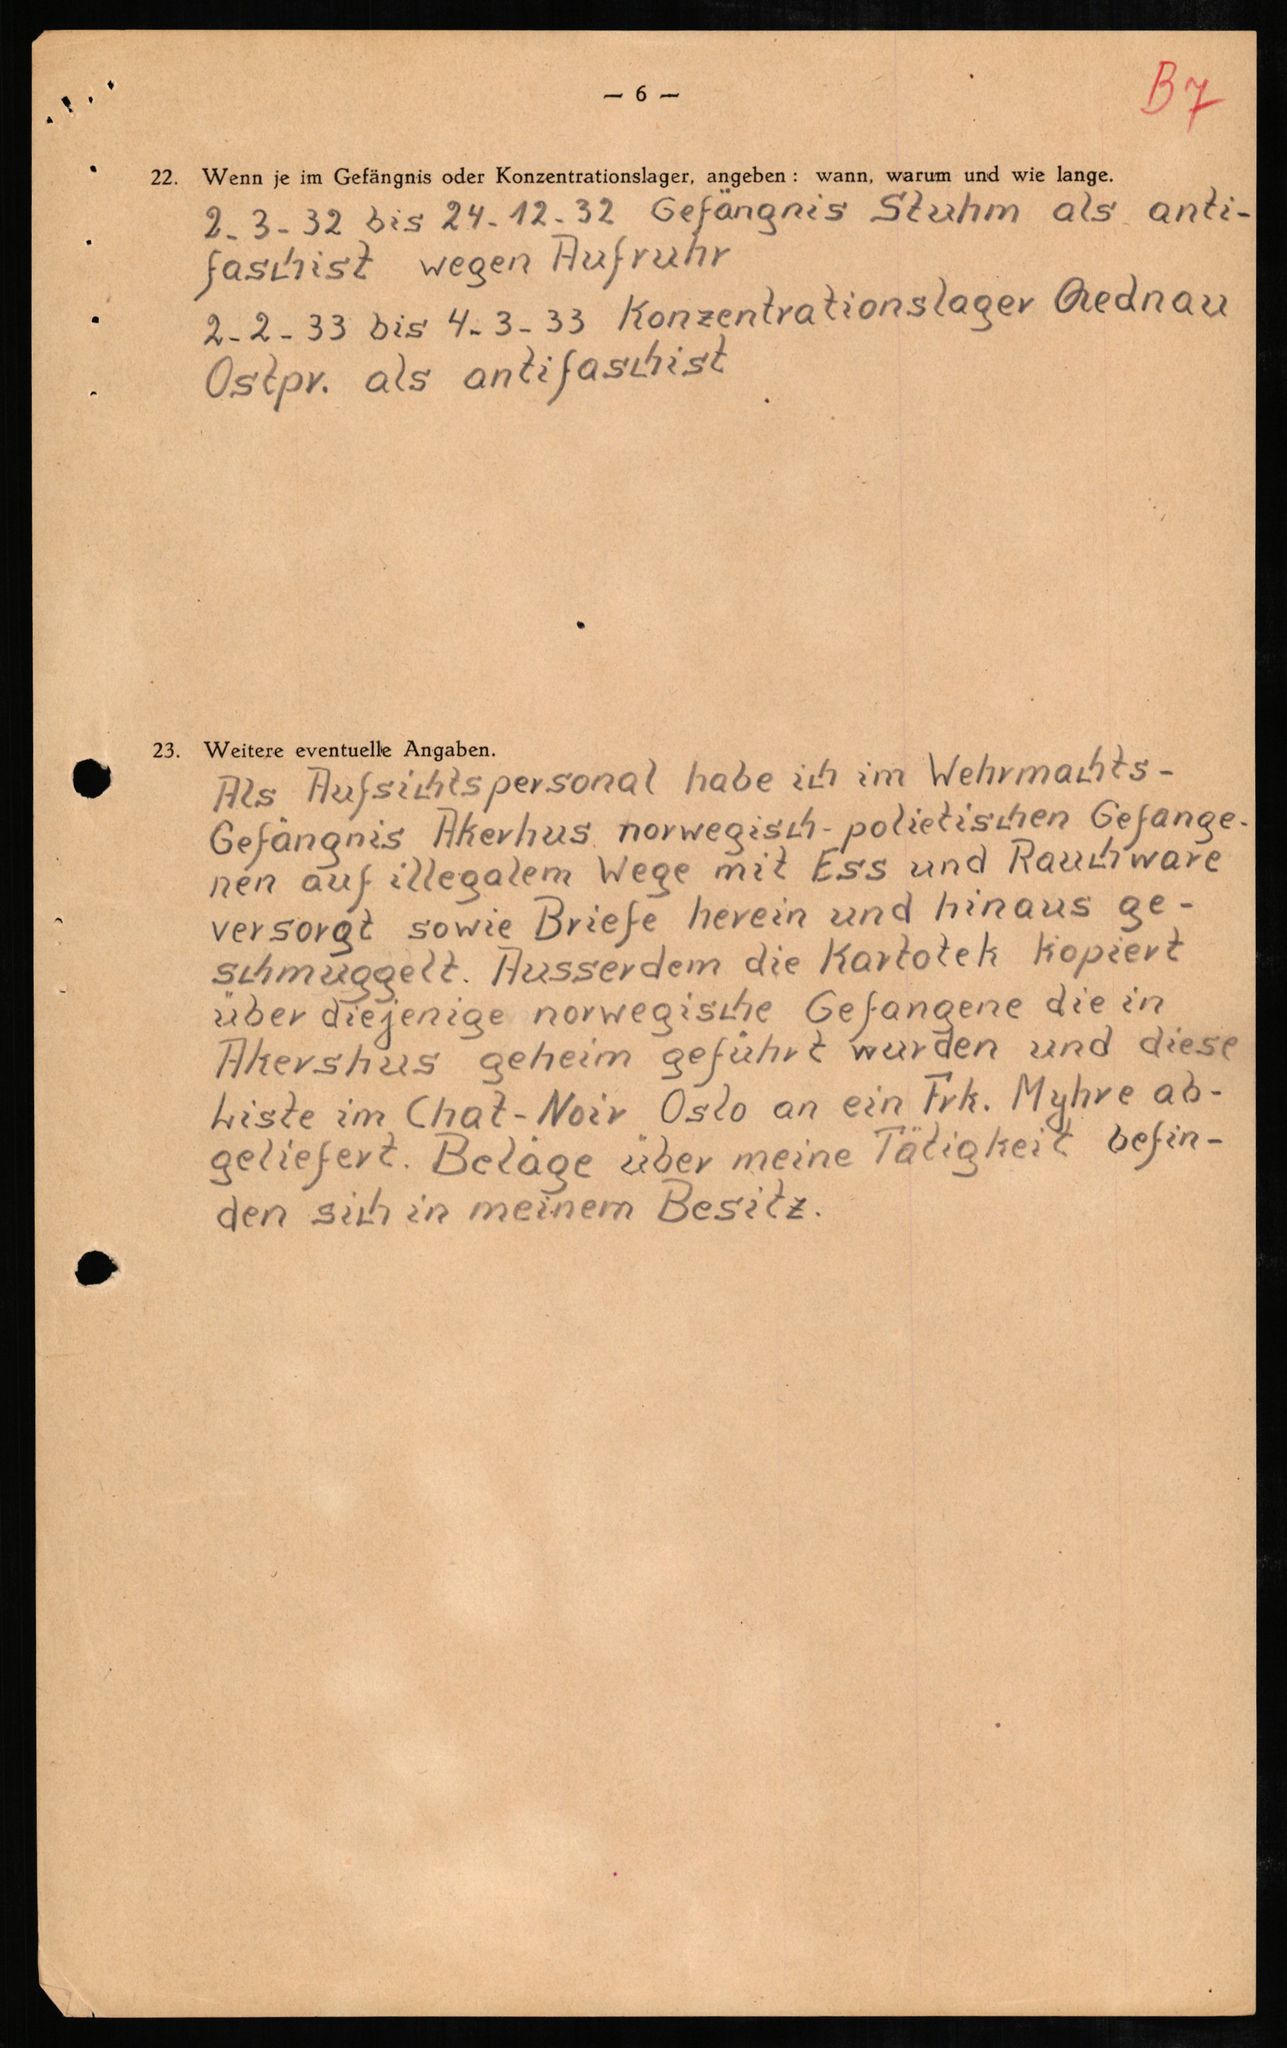 — 6 —
B7
22. Wenn je im Gefängnis oder Konzentrationslager, angeben: wann, warum und wie lange.
2-3-32 bis 24-12-32 Gefängnis Stuhm als anti-
faschist wegen Aufruhr
2-2-33 bis 4-3-33 Konzentrationslager Qednau
Ostpr. als antifaschist
23. Weitere eventuelle Angaben.
Als Aufsichtspersonal habe ich im Wehrmachts-
Gefängnis Akerhus norwegisch-polietischen Gefange-
nen auf illegalem Wege mit Ess und Rauchware
versorgt sowie Briefe herein und hinaus ge-
schmuggelt. Ausserdem die Kartotek kopiert
über diejenige norwegische Gefangene die in
Akershus geheim geführt wurden und diese
Liste im Chat-Noir Oslo an ein Frk. Myhre ab-
geliefert. Beläge über meine Tätigkeit befin-
den sich in meinem Besitz.